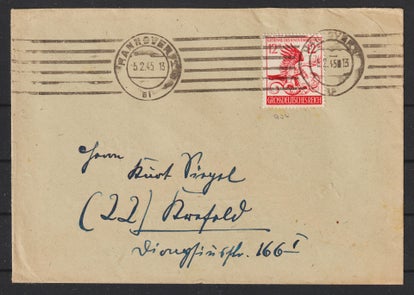 HANNOVER
-5.2.45 13
12 12
GROSSDEUTSCHES REICH
Herrn
Kurt Siegel
(22) Krefeld
Dionysiusstr. 166 I